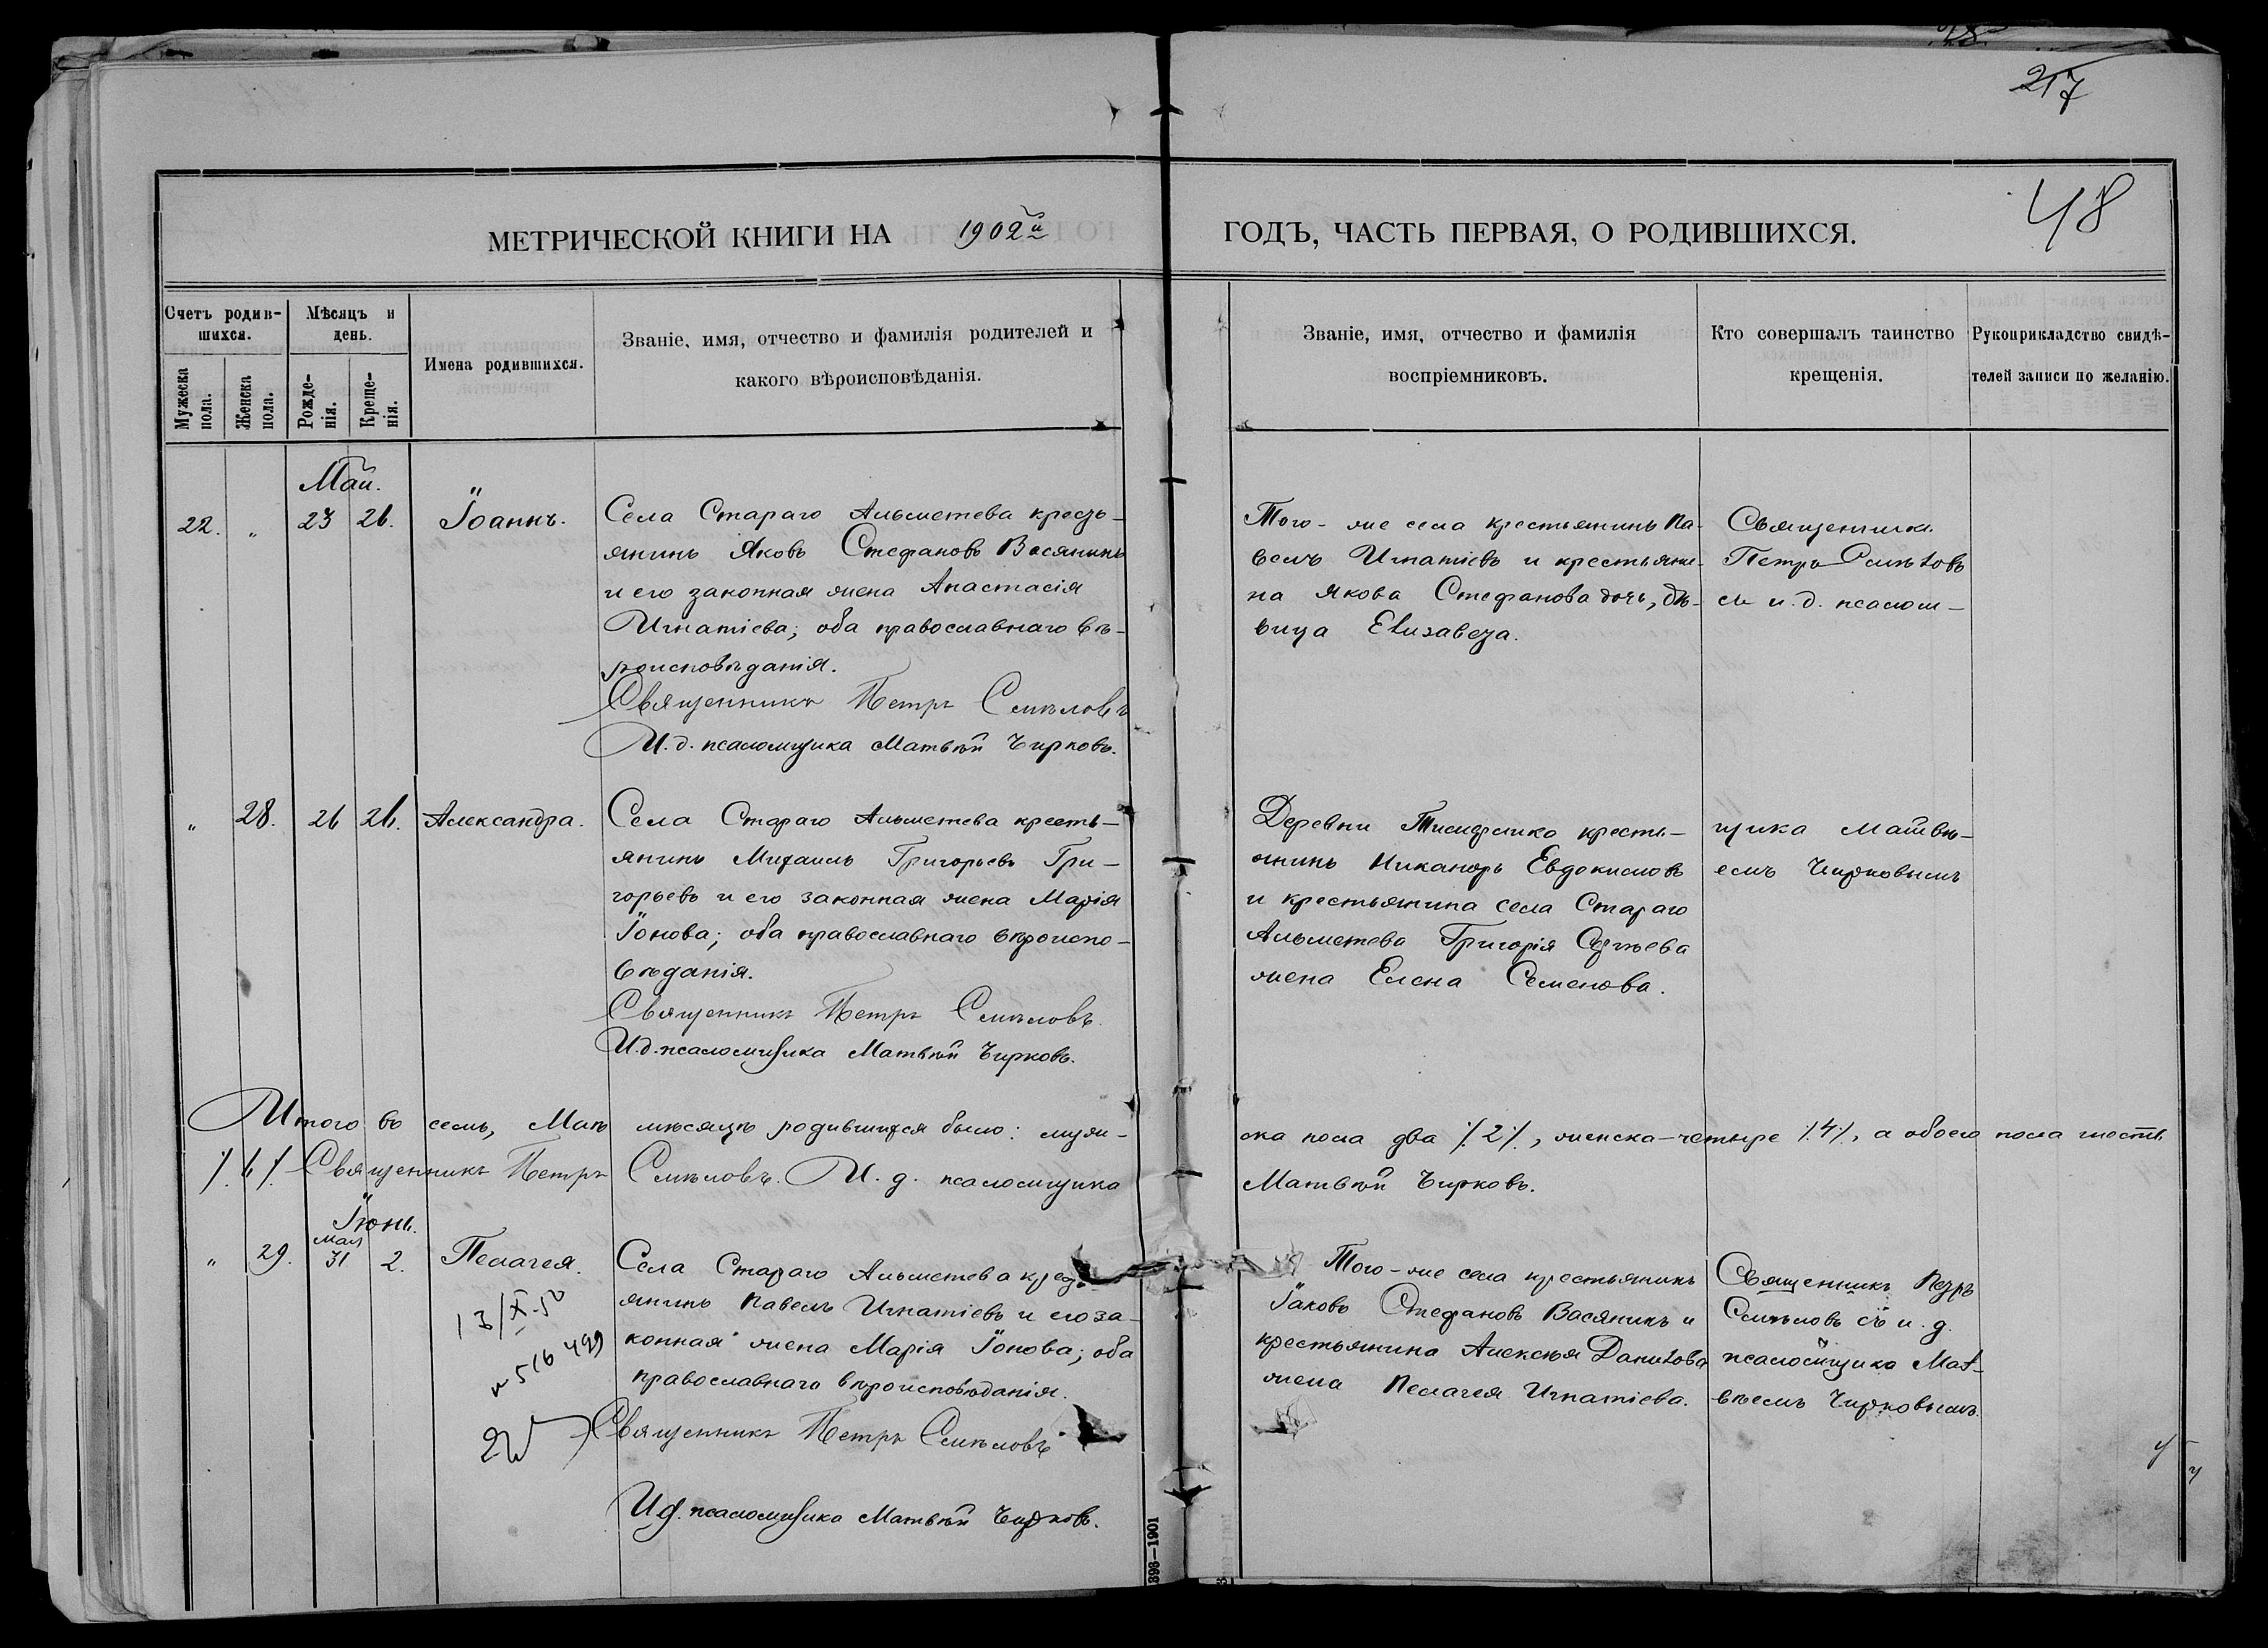 217
48
МЕТРИЧЕСКОЙ КНИГИ НА 1902й ГОДЪ, ЧАСТЬ ПЕРВАЯ, О РОДИВШИХСЯ.
Счетъ родив-
шихся.
Мужеска
пола.
Женска
пола.
Мѣсяцъ и
день.
Рожде-
нія.
Креще-
нія.
Имена родившихся.
Званіе, имя, отчество и фамилія родителей и
какого вѣроисповѣданія.
Званіе, имя, отчество и фамилія
воспріемниковъ.
Кто совершалъ таинство
крещенія.
Рукоприкладство свидѣ-
телей записи по желанію.
Май.
22. " 23 26. Іоаннъ.
Села Стараго Альметева кресть-
янинъ Яковъ Стефановъ Васянинъ
и его законная жена Анастасія
Игнатіева; оба православнаго вѣ-
роисповѣданія.
Священникъ Петръ Смѣловъ
И.д. псаломщика Матвѣй Чирковъ.
Того-же села крестьянинъ Па-
велъ Игнатіевъ и крестьяни-
на Якова Стефанова дочь, дѣ-
вица Елизавета.
Священникъ
Петръ Смѣловъ
съ и.д. псалом-
" 28. 26 26. Александра.
Села Стараго Альметева кресть-
янинъ Михаилъ Григорьевъ Гри-
горьевъ и его законная жена Марія
Іонова; оба православнаго вѣроиспо-
вѣданія.
Священникъ Петръ Смѣловъ.
И.д. псаломщика Матвѣй Чирковъ.
Деревни кресть-
янинъ Никаноръ Евдокимовъ
и крестьянина села Стараго
Альметева Григорія Сергѣева
жена Елена Семенова.
щика Матвѣ-
емъ Чирковымъ
Итого въ семъ, Маѣ мѣсяцѣ родившихся было: муже-
ска пола два /.2./, женска-четыре /.4./, а обоего пола шесть
/.6./. Священникъ Петръ Смѣловъ. И.д. псаломщика
Матвѣй Чирковъ.
Іюнь.
мая
" 29. 31 2. Пелагея.
13/X-50
№ 516499
Села Стараго Альметева кресть-
янинъ Павелъ Игнатіевъ и его за-
конная жена Марія Іонова; оба
православнаго вѣроисповѣданія.
Священникъ Петръ Смѣловъ
И.д. псаломщика Матвѣй Чирковъ.
Того-же села крестьянинъ
Іаковъ Стефановъ Васянинъ и
крестьянина Алексѣя Данилова
жена Пелагея Игнатіева.
Священникъ Петръ
Смѣловъ съ и.д.
псаломщика Мат-
вѣемъ Чирковымъ.
1901